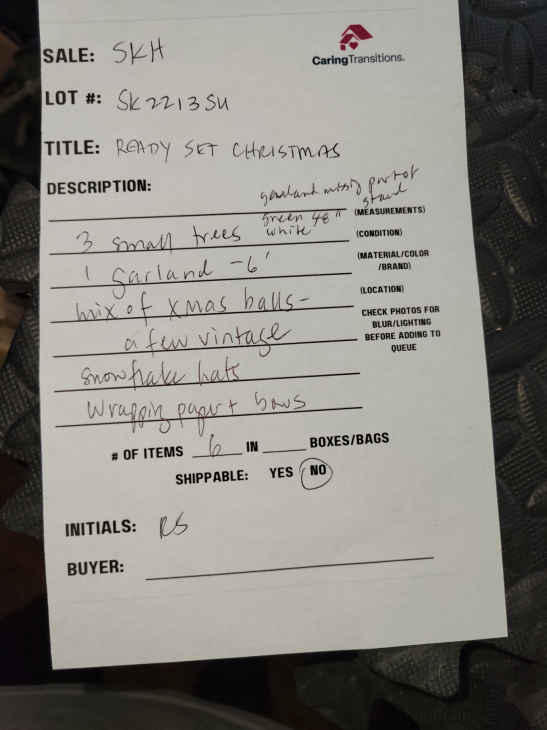 CaringTransitions.
SALE: SKH
LOT #: SK2213SU
TITLE: READY SET CHRISTMAS
DESCRIPTION:
garland missing part of
stand
green 48"
(MEASUREMENTS)
3 small trees white
(CONDITION)
1 garland - 6'
(MATERIAL/COLOR
/BRAND)
mix of xmas balls -
(LOCATION)
a few vintage
CHECK PHOTOS FOR
BLUR/LIGHTING
BEFORE ADDING TO
QUEUE
snowflake hats
Wrapping paper + bows
# OF ITEMS 6 IN BOXES/BAGS
SHIPPABLE: YES NO
INITIALS: RS
BUYER: